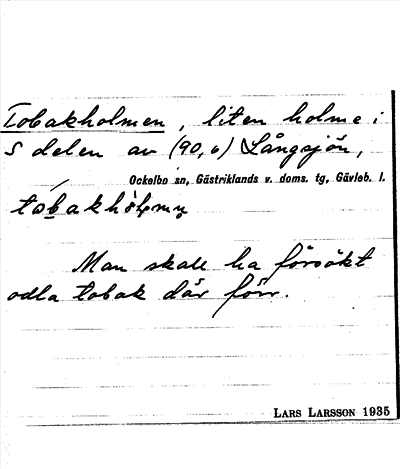 Tobakholmen, liten holme i
S delen av (90,6) Långsjön,
Ockelbo sn, Gästriklands v. doms. tg, Gävleb. l.
Man skall ha försökt
odla tobak där förr.
LARS LARSSON 1935